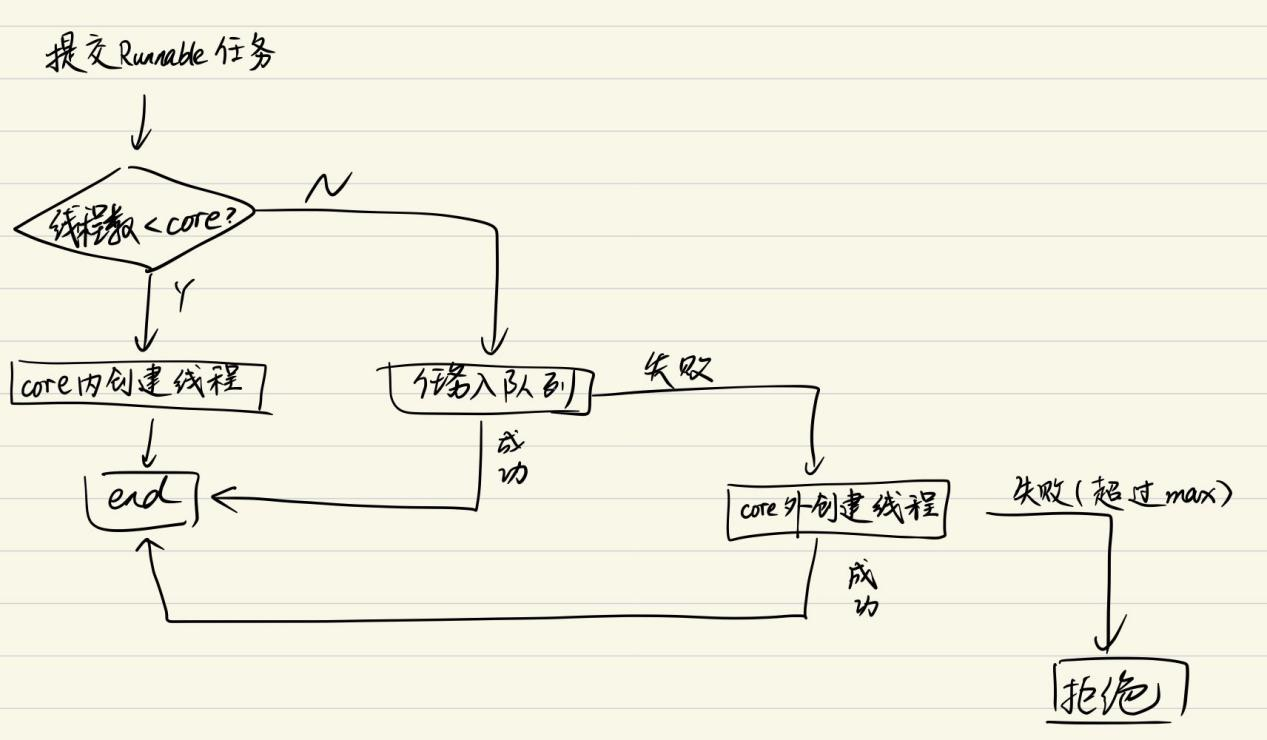 提交Runnable任务
线程数<core?
N
Y
core内创建线程
任务入队列
失败
成功
end
core外创建线程
失败(超过max)
成功
拒绝